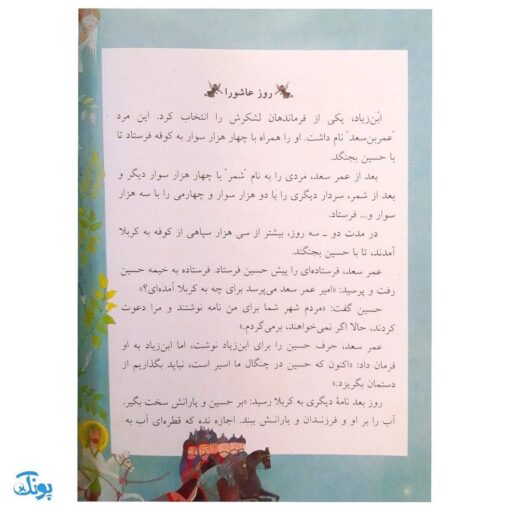 روز عاشورا
ابن‌زیاد، یکی از فرماندهان لشکرش را انتخاب کرد. این مرد
"عمربن‌سعد" نام داشت. او را همراه با چهار هزار سوار به کوفه فرستاد تا
با حسین بجنگد.
بعد از عمر سعد، مردی را به نام "شمر" با چهار هزار سوار دیگر و
بعد از شمر، سردار دیگری را با دو هزار سوار و چهارمی را با سه هزار
سوار و... فرستاد.
در مدت دو ـ سه روز، بیشتر از سی هزار سپاهی از کوفه به کربلا
آمدند، تا با حسین بجنگند.
عمر سعد، فرستاده‌ای را پیش حسین فرستاد. فرستاده به خیمه حسین
رفت و پرسید: «امیر عمر سعد می‌پرسد برای چه به کربلا آمده‌ای؟»
حسین گفت: «مردم شهر شما برای من نامه نوشتند و مرا دعوت
کردند، حالا اگر نمی‌خواهند، برمی‌گردم.»
عمر سعد، حرف حسین را برای ابن‌زیاد نوشت، اما ابن‌زیاد به او
فرمان داد: «اکنون که حسین در چنگال ما اسیر است، نباید بگذاریم از
دستمان بگریزد.»
روز بعد نامهٔ دیگری به کربلا رسید: «بر حسین و یارانش سخت بگیر.
آب را بر او و فرزندان و یارانش ببند. اجازه نده که قطره‌ای آب به
پونک